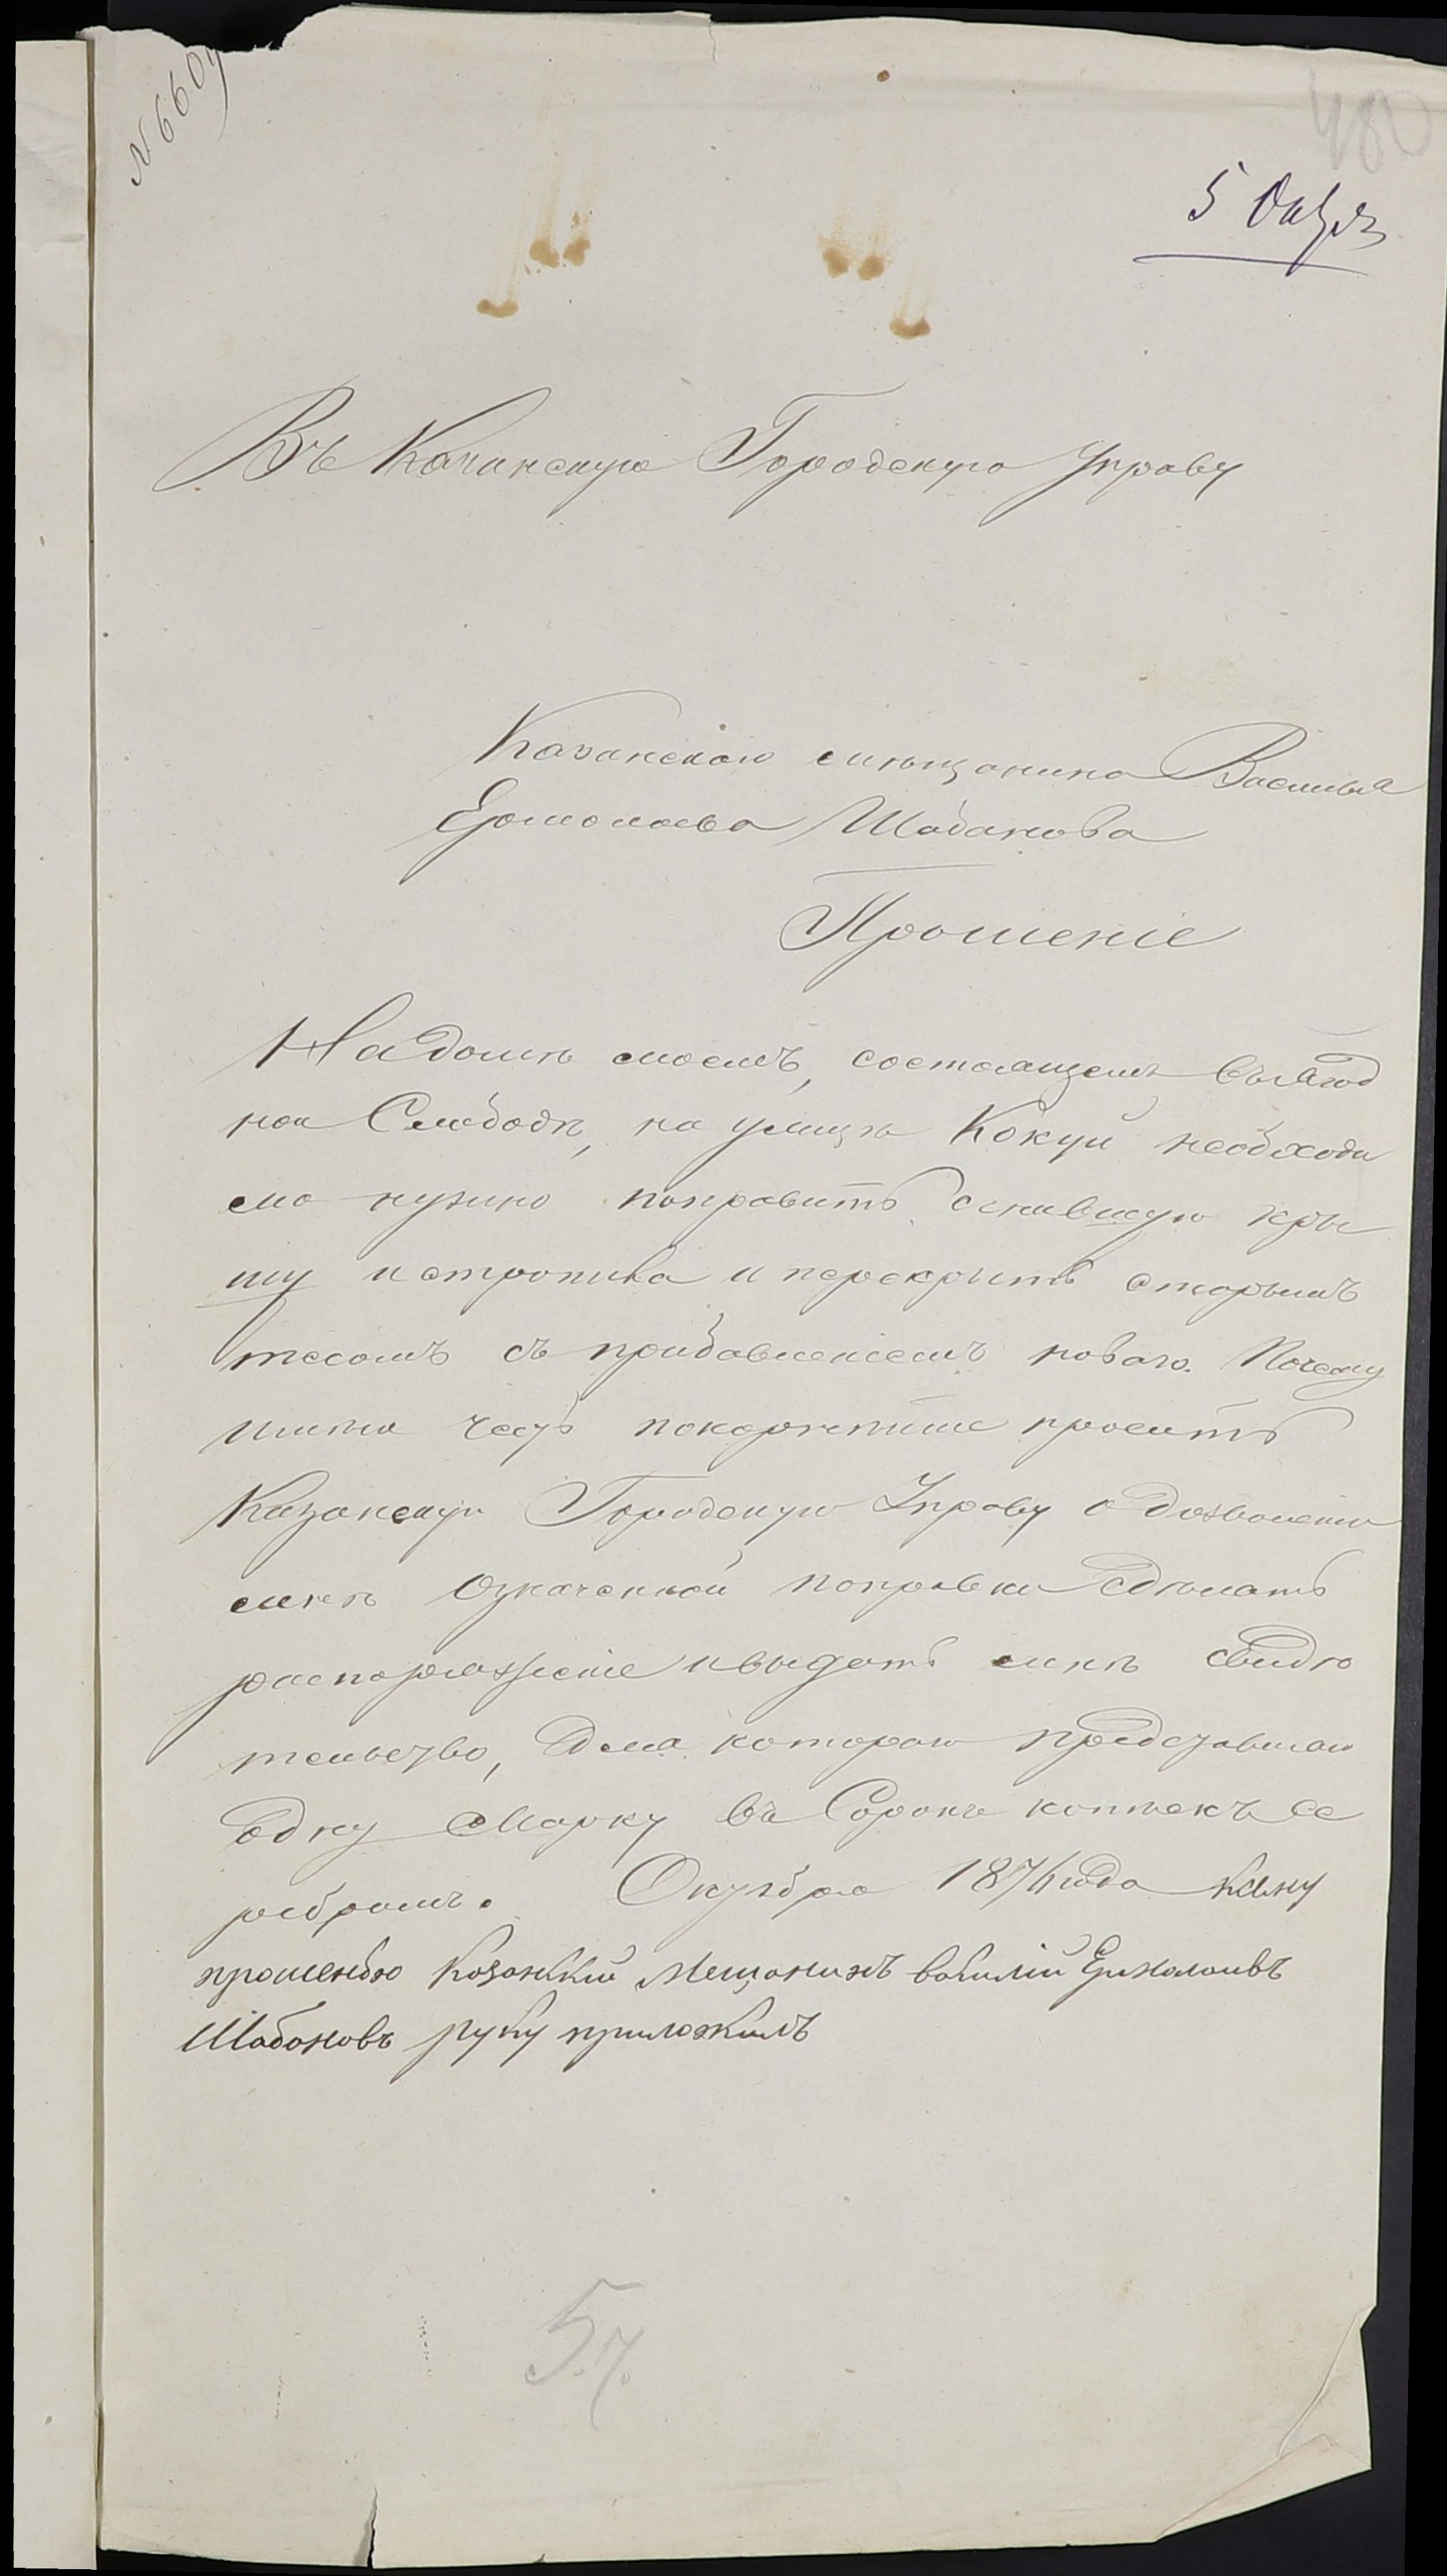 № 660
480
5 Октр
Въ Казанскую Городскую Управу
Казанскаго мѣщанина Василья
Ермолаева Шабанова
Прошеніе
На домѣ моемъ, состоящемъ въ Ягод
ной Слободѣ, на улицѣ Кокуй необходи
мо нужно поправить сгнившую кры
шу и стропила и перекрыть старымъ
тесомъ съ прибавленіемъ новаго. Почему
имѣю честь покорнѣйше просить
Казанскую Городскую Управу о дозволеніи
мнѣ означенной поправки сдѣлать
распоряженіе и выдать мнѣ свидѣ
тельство, для котораго представляю
одну марку въ Сорокъ копѣекъ се
ребромъ. Октября 1874 года К сему
прошенью Казанкий Мещанинъ василий Ермолаивъ
Шабановъ руку приложилъ
57.